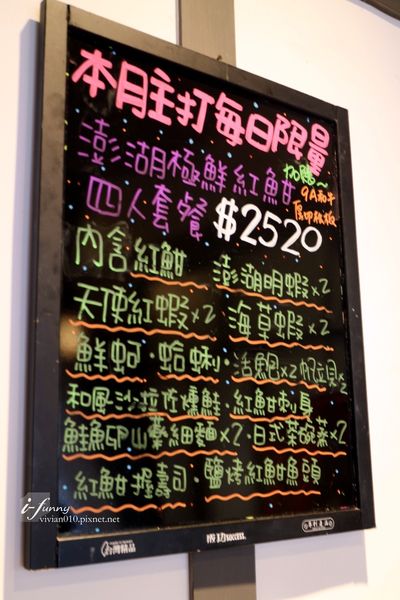 本月主打每日限量
澎湖極鮮紅魽
加贈~
9A和牛
四人套餐 $2520
內含紅魽 澎湖明蝦x2
天使紅蝦x2 海草蝦x2
鮮蚵・蛤蜊・活鮑x2 帆立貝x2
和風沙拉佐燻鮭・紅魽刺身
鮭魚卵山藥細麵x2・日式茶碗蒸x2
紅魽握壽司・鹽烤紅魽魚頭
i-funny
vivian010.pixnet.net
台灣精品
成功success